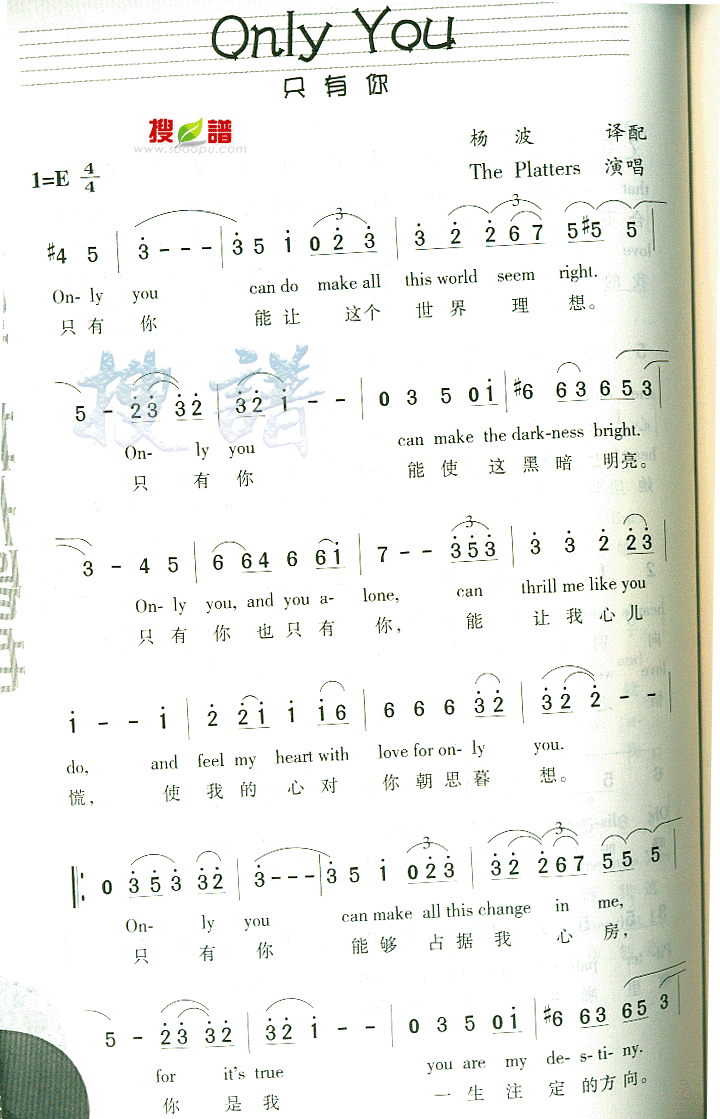 Only You
只有你
搜譜
www.sooopu.com
杨波 译配
1=E 4/4
The Platters 演唱
#4 5 | 3 - - - | 3 5 i 0 2 3 | 3 2 2 6 7 | 5 #5 5
On- ly you can do make all this world seem right.
只有你 能让 这个 世界 理想。
5 - 2 3 3 2 | 3 2 i - - | 0 3 5 0 i | #6 6 3 6 5 3
On- ly you can make the dark-ness bright.
只 有你 能使这黑暗 明亮。
3 - 4 5 | 6 6 4 6 6 i | 7 - - 3 5 3 | 3 3 2 2 3
On- ly you, and you a- lone, can thrill me like you
只有你也只有 你, 能 让我心儿
i - - i | 2 2 i i i 6 | 6 6 6 3 2 | 3 2 2 - -
do, and feel my heart with love for on- ly you.
慌, 使我的心对 你朝思暮 想。
0 3 5 3 3 2 | 3 - - - | 3 5 i 0 2 3 | 3 2 2 6 7 5 5 5
On- ly you can make all this change in me,
只 有你 能够 占据我 心房,
5 - 2 3 3 2 | 3 2 i - - | 0 3 5 0 i | #6 6 3 6 5 3
for it's true you are my de- s- ti- ny.
你 是我 一生注定的方向。